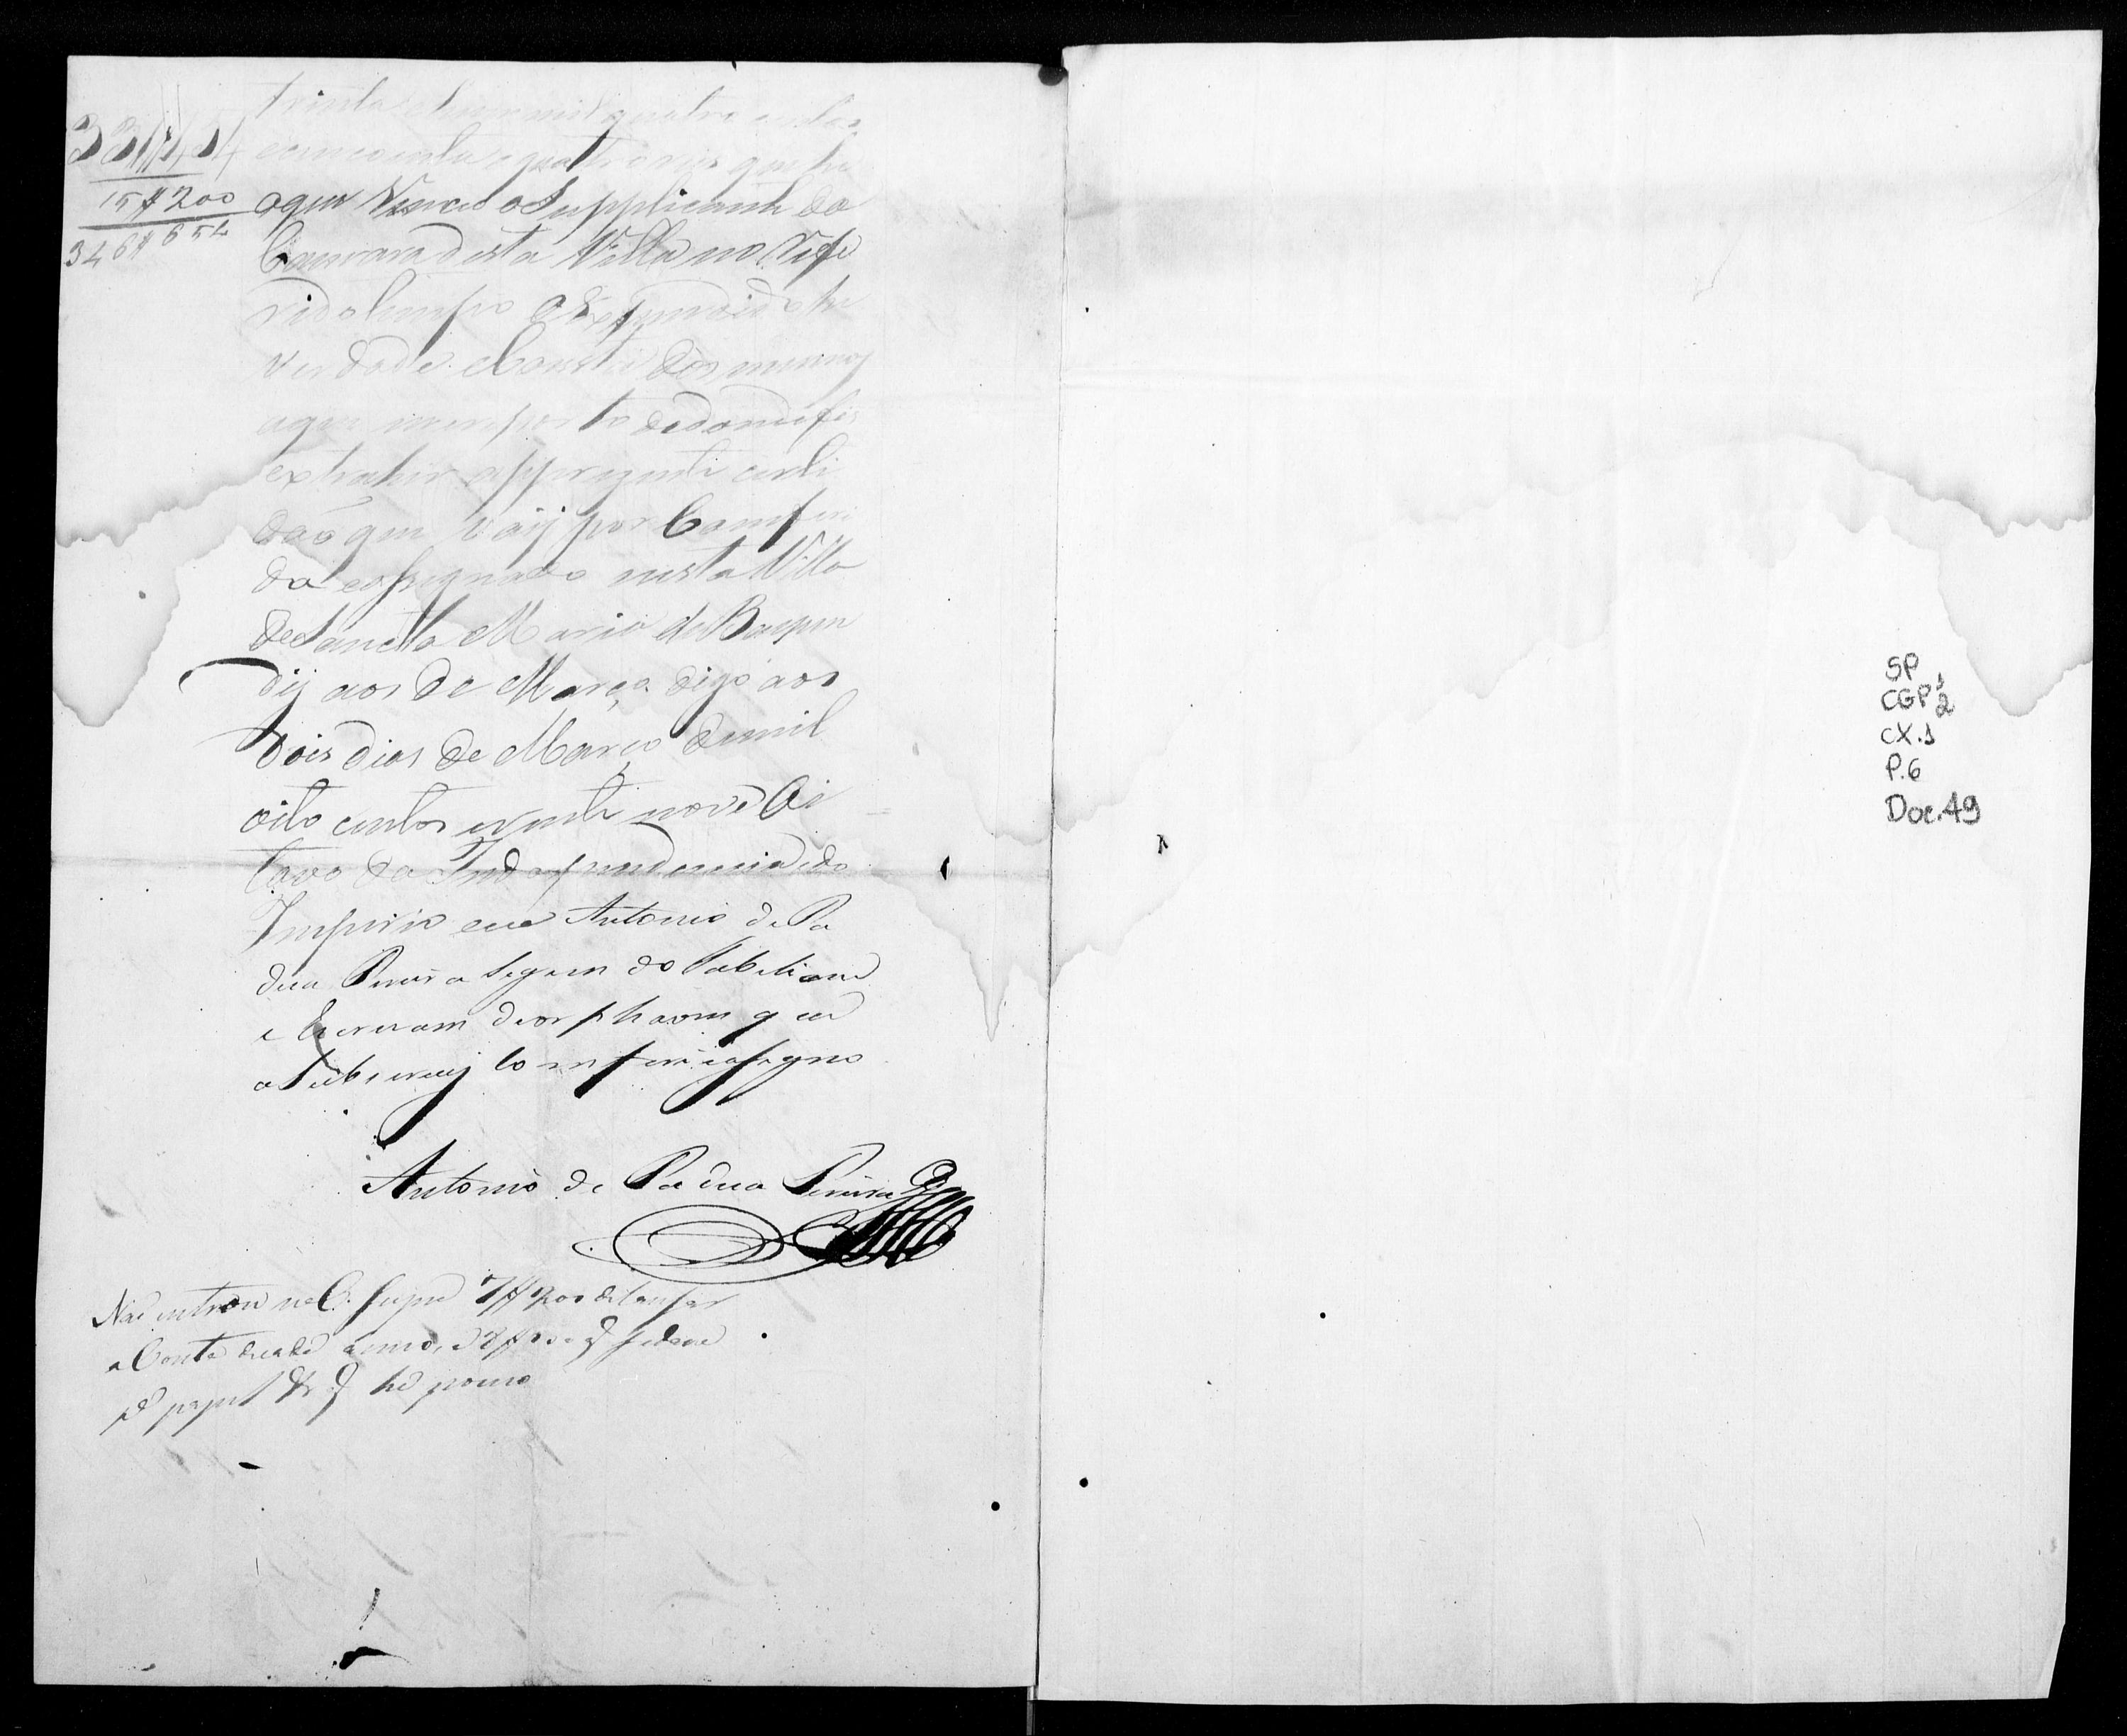 trinta e hum mil quatro centos
331$454
e cincoenta e quatro reis que he
15$200
o que Venceo o Supplicante da
346$654
Camara desta Villa no Refe
rido tempo O Refferido he
verdade e Consta dos mesmos
a que me reporto dedonde fis
extrahir a pprezente certi
daõ que vaij por Comferi
da e assignada nesta Villa
de Sancta Maria de Baepen
dij aos de Março, digo aos
dois dias de Março de mil
oito centos e vinte nove Oi
tavo da Independencia e do
Imperio eu Antonio de Pa
dua Pereira Segundo Tabeliam
e Escrivam de orphaons que
a Subscrevij Comferi e assigno
Antonio de Padua Pereira
Não entrou na C. supra
a Conta
papel he pouco
SP
CGP 1,2
CX.1
P.6
Doc.49